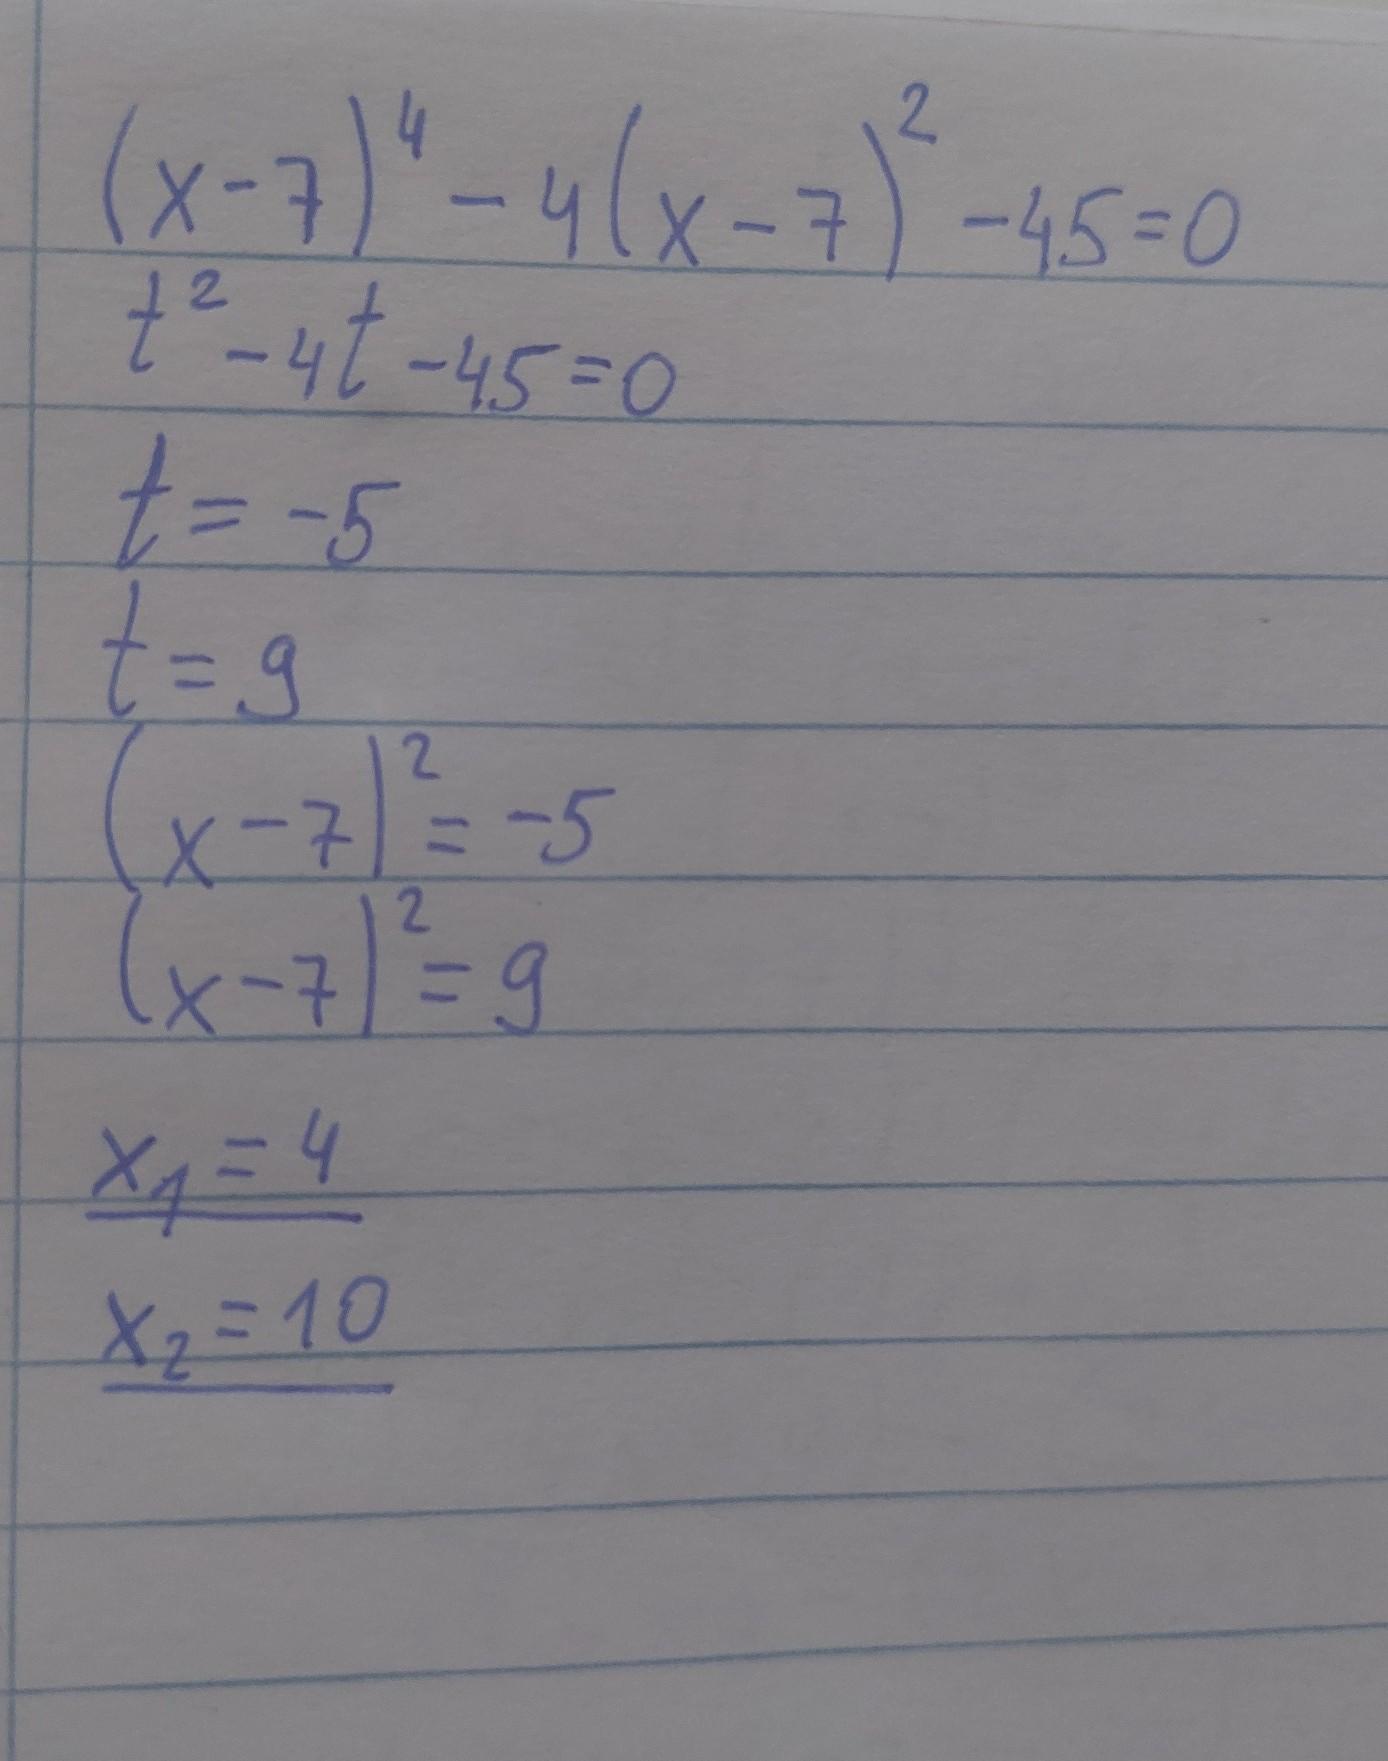 (x-7)⁴ - 4(x-7)² - 45 = 0
t² - 4t - 45 = 0
t = -5
t = 9
(x-7)² = -5
(x-7)² = 9
x₁ = 4
x₂ = 10